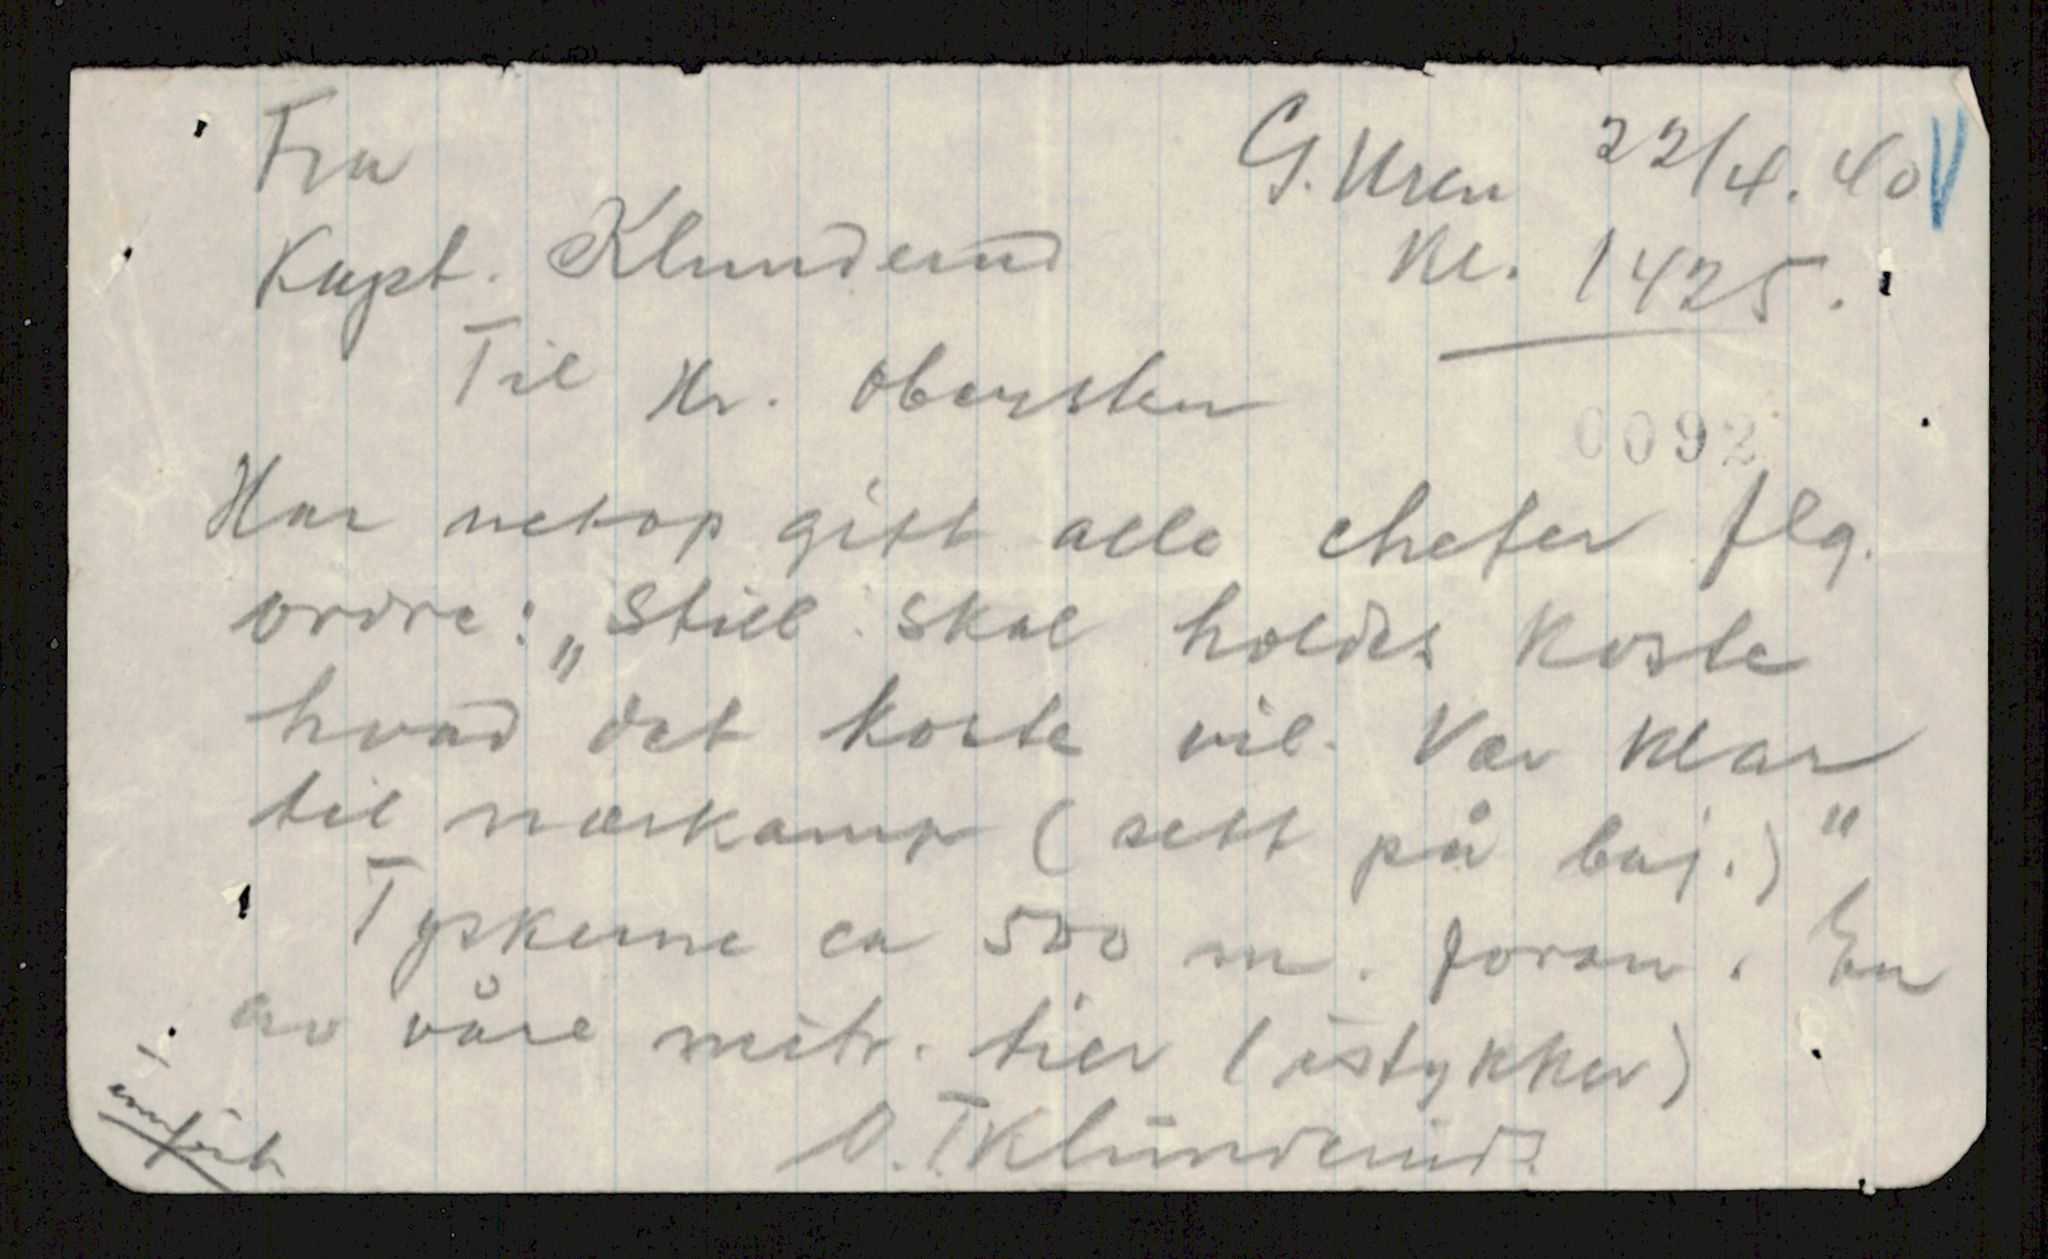 Fra
G. Uren 22/4. 40 V
Kapt. Klunderud
Kl. 1425.
Til Hr. Obersten
0092
Har netop gitt alle chefer flg.
ordre: „Still. skal holdes koste
hvad det koste vil. Vær klar
til nærkamp (sett på baj.)"
Tyskerne ca 500 m. foran. En
av våre mitr. tier (istykker)
O. T. Klünderüd.
innført